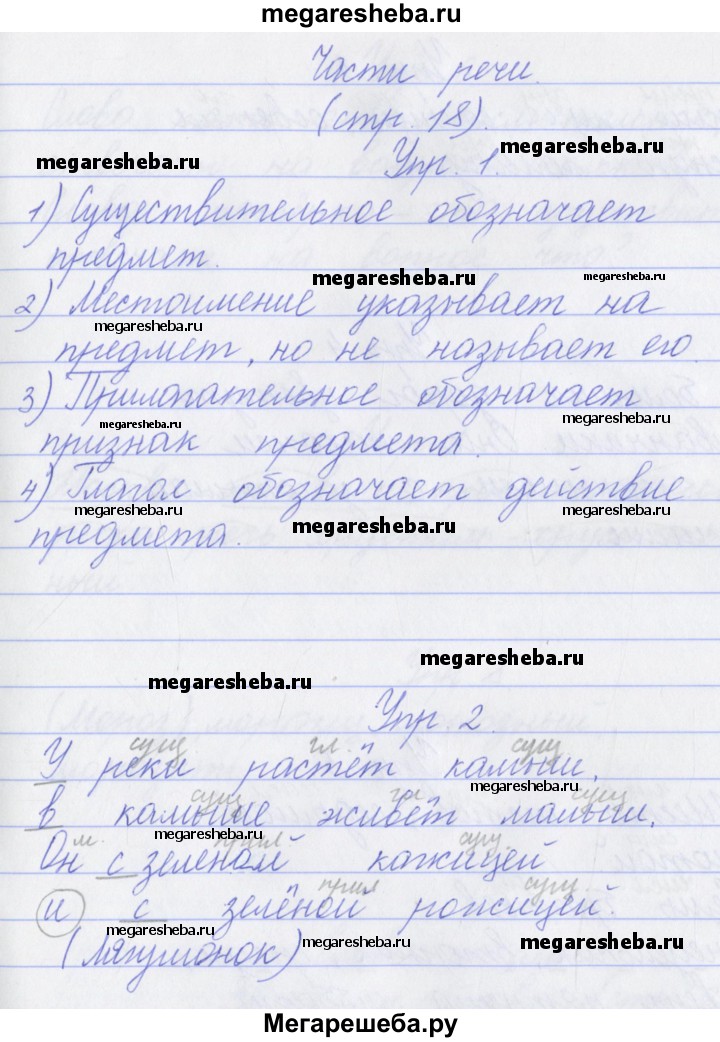 megaresheba.ru
Части речи.
(стр. 18).
megaresheba.ru
Упр. 1.
megaresheba.ru
1) Существительное обозначает
предмет.
megaresheba.ru
megaresheba.ru
2) Местоимение указывает на
megaresheba.ru
предмет, но не называет его.
3) Прилагательное обозначает
megaresheba.ru
megaresheba.ru
признак предмета.
4) Глагол обозначает действие
megaresheba.ru
megaresheba.ru
megaresheba.ru
предмета.
megaresheba.ru
megaresheba.ru
Упр. 2.
сущ. гл. сущ.
У реки растёт камыш,
сущ. гл. сущ.
в камыше живёт малыш.
megaresheba.ru
megaresheba.ru
м. прил. сущ.
Он с зеленой кожицей
megaresheba.ru
megaresheba.ru
прил сущ.
и с зелёной рожицей.
megaresheba.ru
megaresheba.ru
megaresheba.ru
(Лягушонок)
Мегарешеба.ру